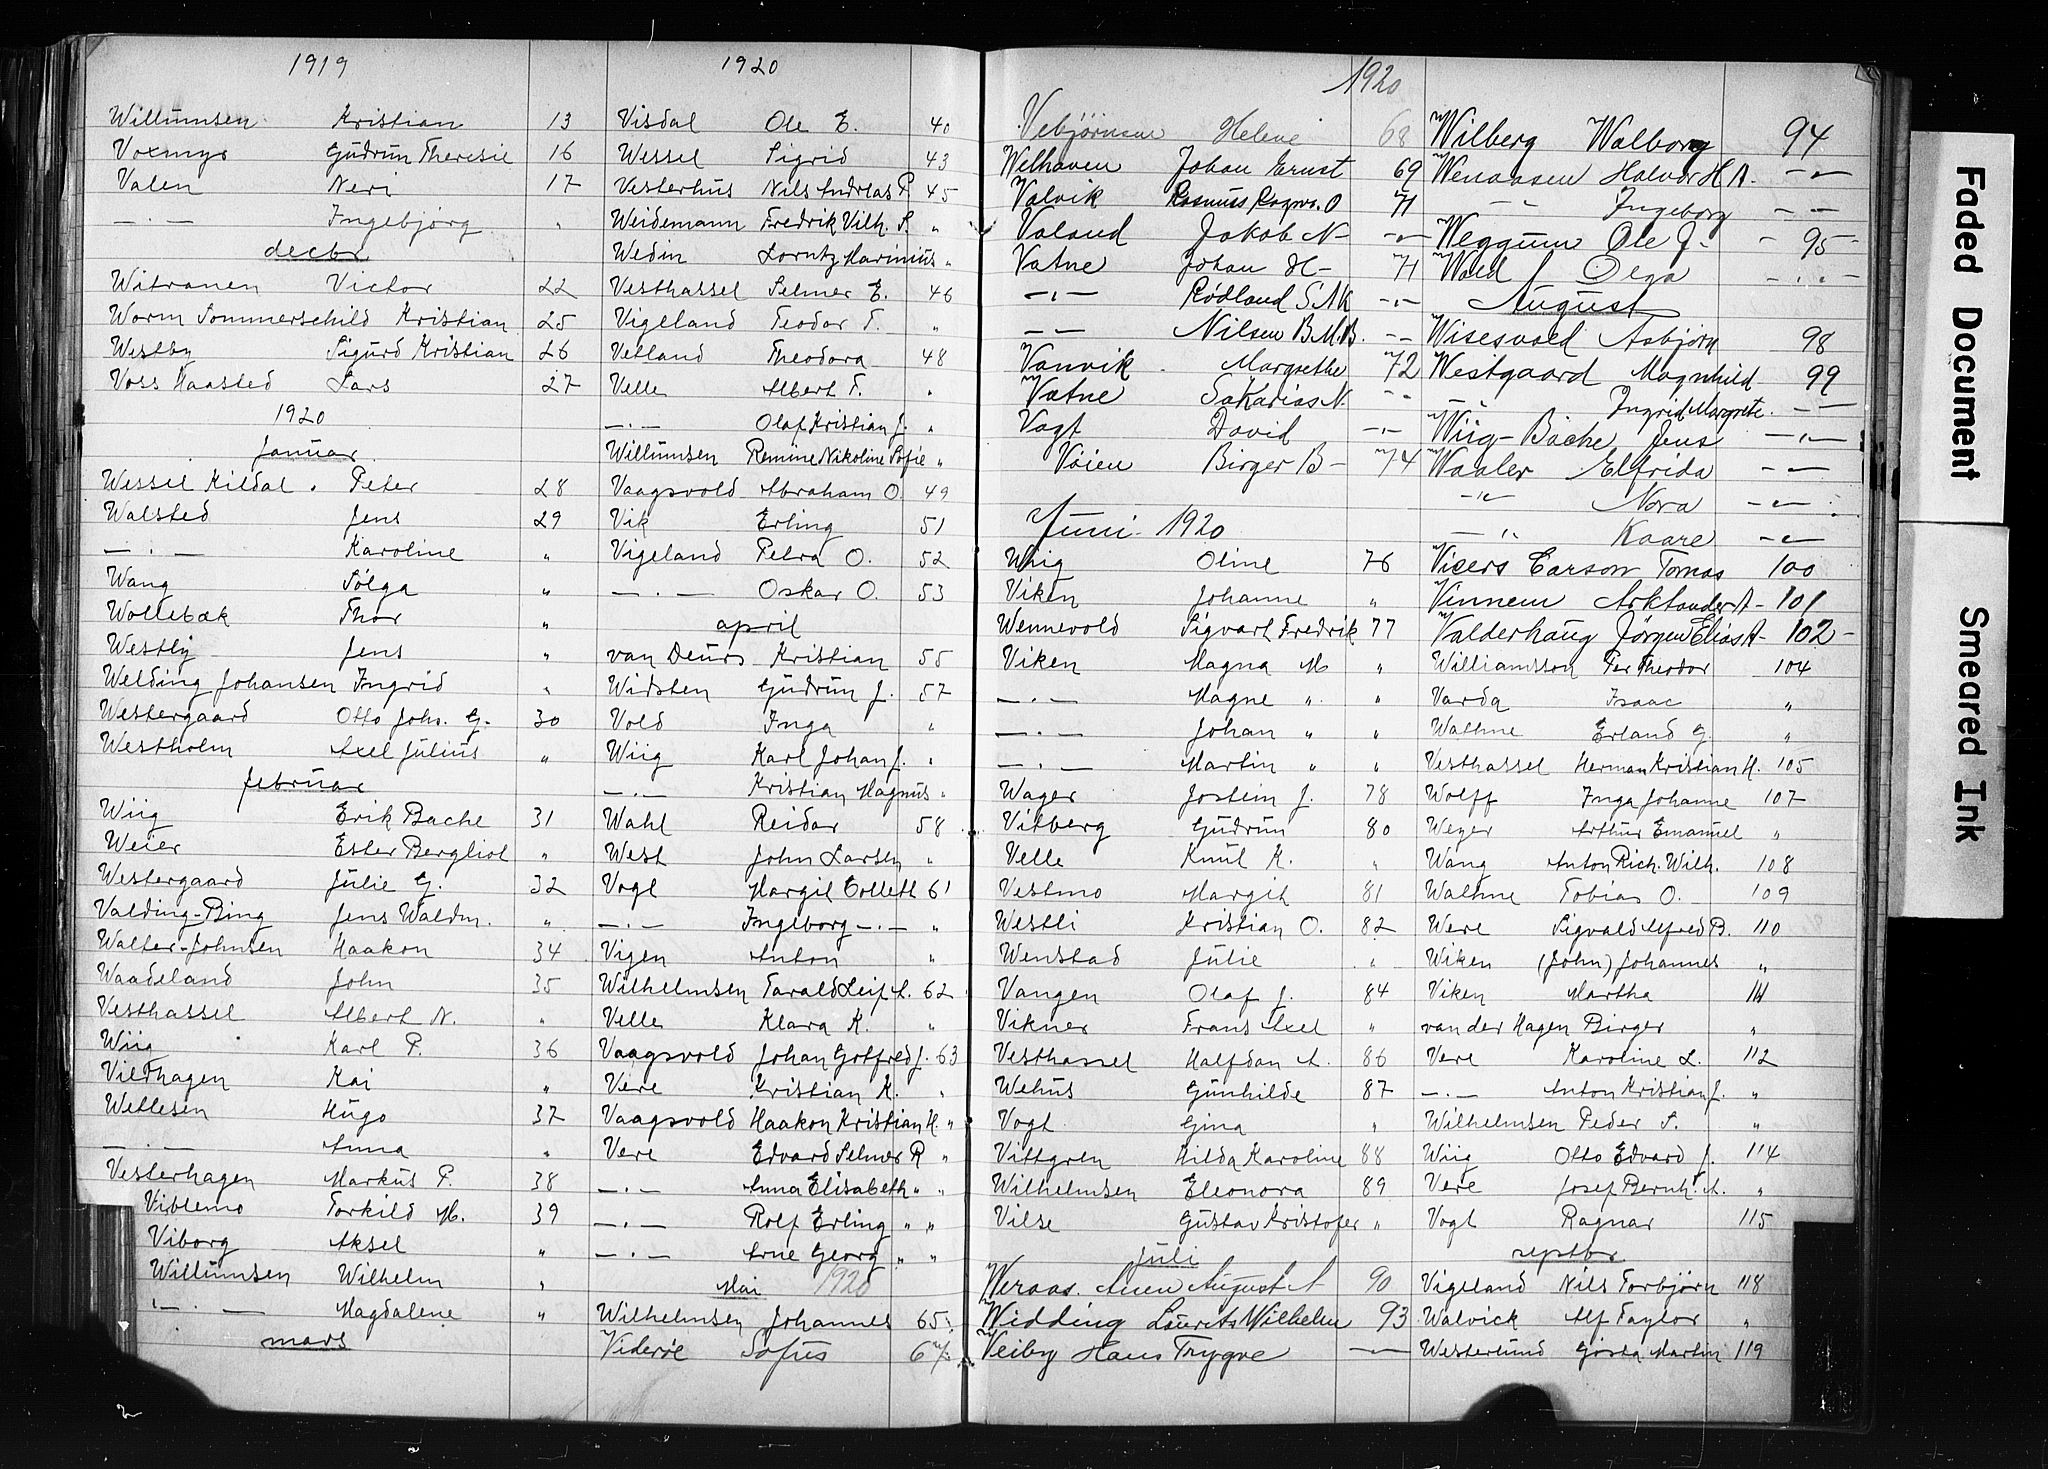 1919
Willumsen Kristian 13
Voxmyr Gudrun Theresie 16
Valen Neri 17
—.— Ingebjørg "
decbr
Witranen Victor 22
Worm Sommerschild Kristian 25
Westby Sigurd Kristian 26
Voss Haasted Lars 27
1920
Januar
Wessel Kildal. Peter 28
Walsted Jens 29
—.— Karoline "
Wang Sølga "
Wollebæk Thor "
Westby Jens "
Welding Johansen Ingrid "
Westergaard Otto Johs. G. 30
Westholm Axel Julius "
februar
Wiig Erik Bache 31
Weier Ester Bergliot "
Westergaard Julie G. 32
Valding-Bing Jens Waldm. "
Walter-Johnsen Haakon 34
Waadeland John 35
Vesthassel Albert N. "
Wiig Karl P. 36
Vildhagen Kai "
Wetlesen Hugo 37
—.— Anna "
Vesterhagen Markus P. 38
Viblemo Torkild M. 39
Viborg Aksel "
Willumsen Wilhelm "
—.— Magdalene "
mars
1920
Visdal Ole E. 40
Wessel Sigrid 43
Vesterhus Nils Andreas P. 45
Weidemann Fredrik Vilh. S. "
Wedin Lorntz Marinius "
Vesthassel Selmer E. 46
Vigeland Teodor T. "
Vetland Theodora 48
Velle Albert T. "
—.— Olaf Kristian J. "
Willumsen Remine Nikoline Sofie "
Vaagsvold Abraham O. 49
Vik Erling 51
Vigeland Petra O. 52
—.— Oskar O. 53
april
van Deurs Kristian 55
Widsten Gudrun J. 57
Vold Inga "
Wiig Karl Johan J. "
—.— Kristian Magnus "
Wahl Reidar 58
West John Larsen "
Vogt Margit Collett 61
—.— Ingeborg —.— "
Vigen Anton "
Wilhelmsen Tarald Leif A. 62
Velle Klara K. "
Vaagsvold Johan Gotfred J. 63
Vere Kristian K. "
Vaagsvold Haakon Kristian H. "
Vere Edvard Selmer R "
—.— Anna Elisabeth " "
—.— Rolf Erling " "
—.— Arne Georg " "
Mai 1920
Wilhelmsen Johannes 65
Viderøe Sofus 67
1920
Vebjørnsen Helene 68
Welhaven Johan Ernst 69
Valvik Rasmus Ragnv. O 71
Valand Jakob N- —"—
Vatne Johan H- 71
—"— Rødland S. AK —"—
— — Nilsen B.M.B. — —
Vanvik Margrethe 72
Vatne Sakarias N. — —
Vogt David —"—
Vaien Birger B- 74
Juni 1920
Wiig Oline 76
Viken Johanne "
Wennevold Sigvart Fredrik 77
Viken Magna M "
—.— Magne " "
—.— Johan " "
—.— Martin " "
Wager Jostein J. 78
Vitberg Gudrun 80
Velle Knut K. "
Vestmo Margit 81
Westli Kristian O. 82
Wenstad Julie "
Vangen Olaf J. 84
Vikner Frans Axel "
Vesthassel Halfdan A. 86
Wehus Gunhilde 87
Vogt Gina "
Vittgren Hilda Karoline 88
Wilhelmsen Eleonora 89
Vilse Gustav Kristofer "
Juli
Weraas. Anen August A 90
Widding Laurits Wilhelm 93
Veiby Hans Trygve —
Wilberg Walborg 94
Wenaasen Halvor H A. —"—
— — Ingeborg — —
Weggum Ole J. - 95 -
Wold Olga —"—
August
Wisesvold Asbjørn 98
Westgaard Magnhild 99
— — Ingrid Margrete. — —
Wiig-Bache Jens —"—
Waaler Elfrida — —
—"— Nora —"—
—"— Kaare —"—
Vicers Carson Tomas 100
Vinnem Arktander A- 101
Valderhaug Jørgen Elias A- 102-
Williamsson Per Theodor 104
Varda Isaac "
Wathne Erland G. "
Vesthassel Herman Kristian H. 105
Wolff Inga Johanne 107
Weyer Arthur Emanuel "
Wang Anton Rich. Wilh. 108
Wathne Tobias O. 109
Were Sigvald Alfred B. 110
Wiken (John) Johannes "
Viken Martha 111
van der Hagen Birger "
Vere Karoline L. 112
—.— Anton Kristian J. "
Wilhelmsen Peder S. "
Wiig Otto Edvard J. 114
Vere Josef Bernh. A. "
Vogt Ragnar 115
septbr
Vigeland Nils Torbjørn 118
Walvick Alf Taylor "
Westerlund Gøsta Martin 119
Faded Document
Smeared Ink